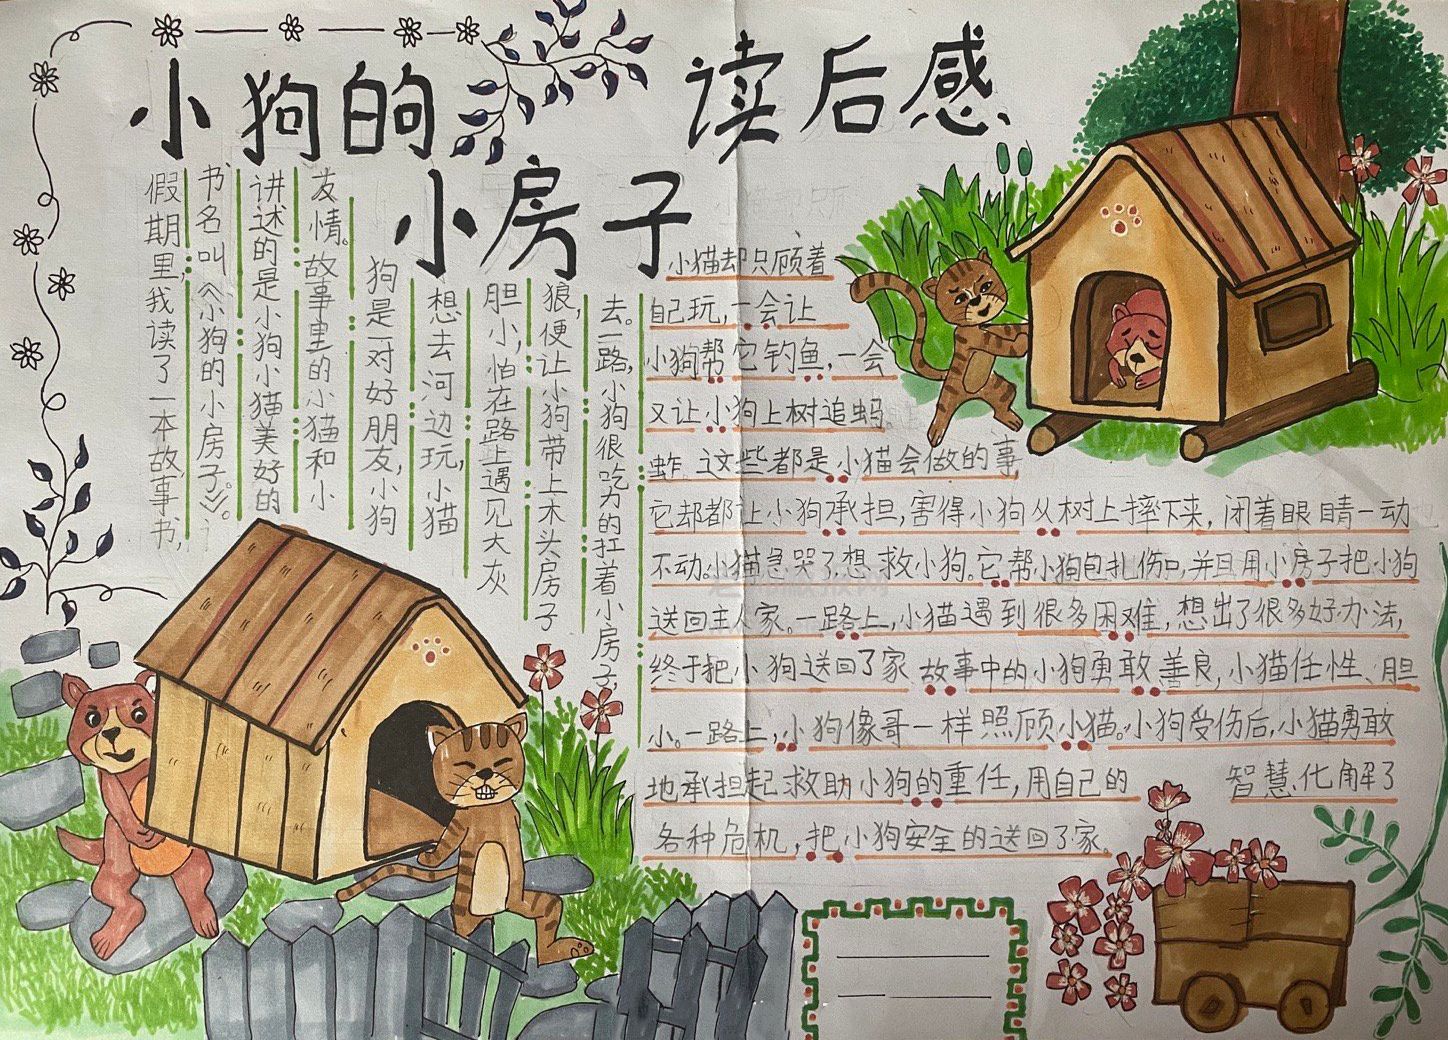 小狗的
小房子
读后感
假期里,我读了一本故事书,
书名叫《小狗的小房子》。
讲述的是小狗小猫美好的
友情。故事里的小猫和小
狗是一对好朋友,小狗
想去河边玩,小猫
胆小,怕在路上遇见大灰
狼,便让小狗带上木头房子
去。一路,小狗很吃力的扛着小房子,
小猫却只顾着
自己玩,一会让
小狗帮它钓鱼,一会
又让小狗上树追蚂
蚱。这些都是小猫会做的事
它却都让小狗承担,害得小狗从树上摔下来,闭着眼睛一动
不动。小猫急哭了,想救小狗。它帮小狗包扎伤口,并且用小房子把小狗
送回主人家。一路上,小猫遇到很多困难,想出了很多好办法,
终于把小狗送回了家 故事中的小狗勇敢善良,小猫任性、胆
小。一路上,小狗像哥一样照顾小猫。小狗受伤后,小猫勇敢
地承担起救助小狗的重任,用自己的 智慧化解了
各种危机,把小狗安全的送回了家。